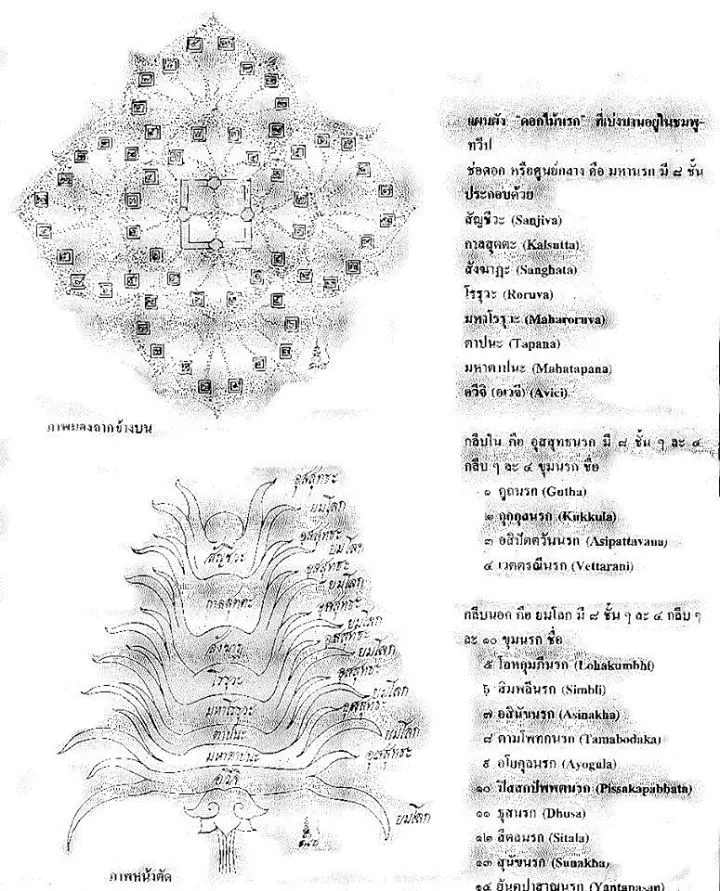 แผนผัง "ดอกไม้นรก" ที่เบ่งบานอยู่ในชมพู-
ทวีป
ช่อดอก หรือศูนย์กลาง คือ มหานรก มี ๘ ชั้น
ประกอบด้วย
สัญชีวะ (Sanjiva)
กาลสุตตะ (Kalsutta)
สังฆาฏะ (Sanghata)
โรรุวะ (Roruva)
มหาโรรุวะ (Maharoruva)
ตาปนะ (Tapana)
มหาตาปนะ (Mahatapana)
อวีจิ (อเวจี) (Avici)
ภาพมองจากข้างบน
กลีบใน คือ อุสสุทธนรก มี ๘ ชั้น ๆ ละ ๔
กลีบ ๆ ละ ๔ ขุมนรก ชื่อ
๑ คูถนรก (Gutha)
๒ กุกกุลนรก (Kukkula)
๓ อสิปัตตวันนรก (Asipattavana)
๔ เวตตรณีนรก (Vettarani)
กลีบนอก คือ ยมโลก มี ๘ ชั้น ๆ ละ ๔ กลีบ ๆ
ละ ๑๐ ขุมนรก ชื่อ
๕ โลหกุมภีนรก (Lohakumbhi)
๖ สิมพลีนรก (Simbli)
๗ อสินัขนรก (Asinakha)
๘ ตามโพทกนรก (Tamabodaka)
๙ อโยคุลนรก (Ayogula)
๑๐ ปิสสกปัพพตนรก (Pissakapabbata)
๑๑ ธุสนรก (Dhusa)
๑๒ สีตลนรก (Sitala)
๑๓ สุนัขนรก (Sunakha)
๑๔ ยันตปาสาณนรก (Yantapasan)
อุสสุทธะ
ยมโลก
อุสสุทธะ
ยมโลก
อุสสุทธะ
ยมโลก
อุสสุทธะ
ยมโลก
อุสสุทธะ
ยมโลก
อุสสุทธะ
ยมโลก
อุสสุทธะ
ยมโลก
อุสสุทธะ
ยมโลก
สัญชีวะ
กาลสุตตะ
สังฆาฏ
โรรุวะ
มหาโรรุวะ
ตาปนะ
มหาตาปนะ
อวีจิ
ภาพหน้าตัด